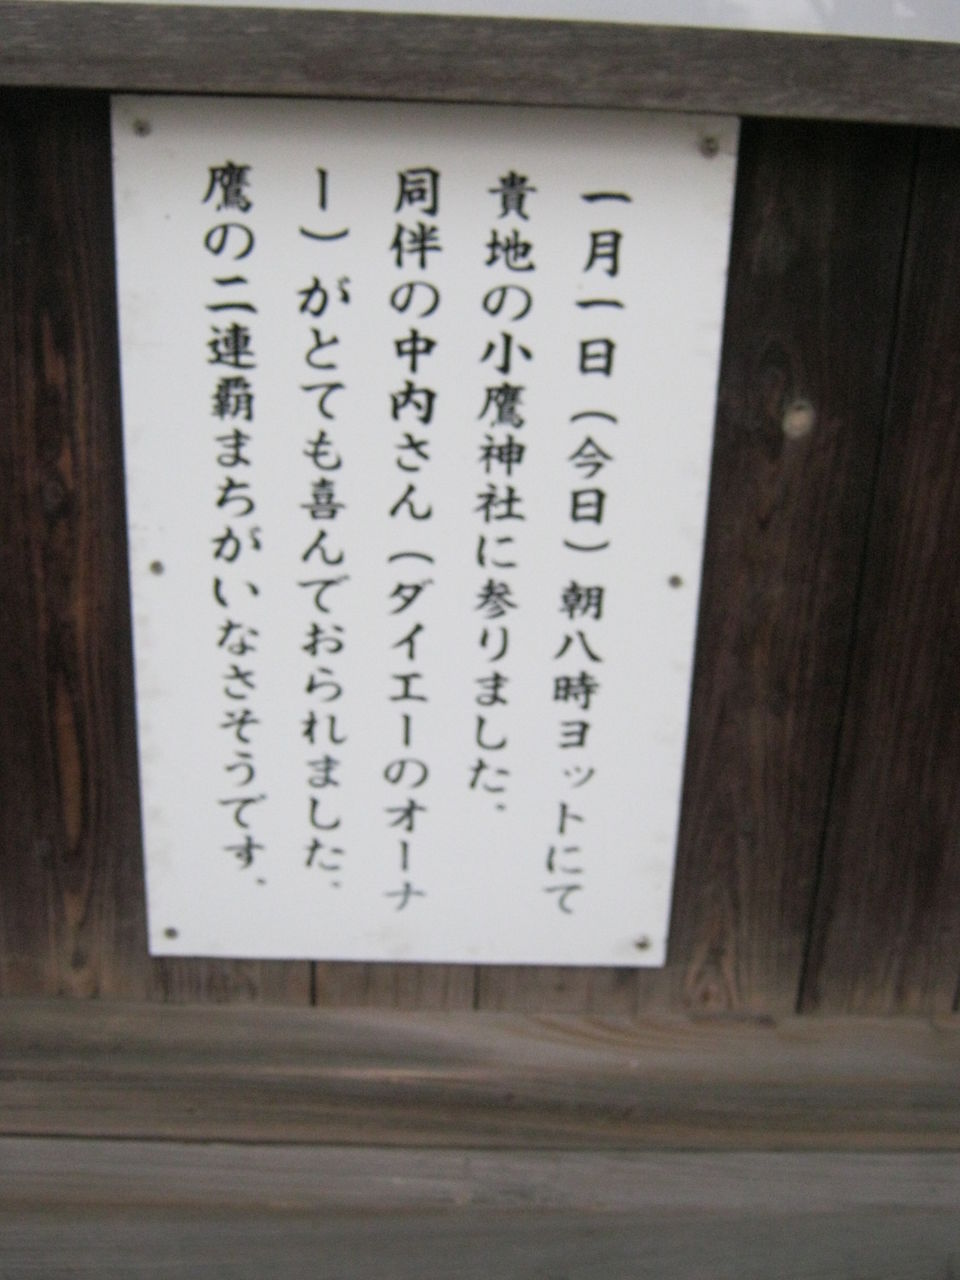 一月一日(今日)朝八時ヨットにて
貴地の小鷹神社に参りました.
同伴の中内さん(ダイエーのオーナ
ー)がとても喜んでおられました.
鷹の二連覇まちがいなさそうです.